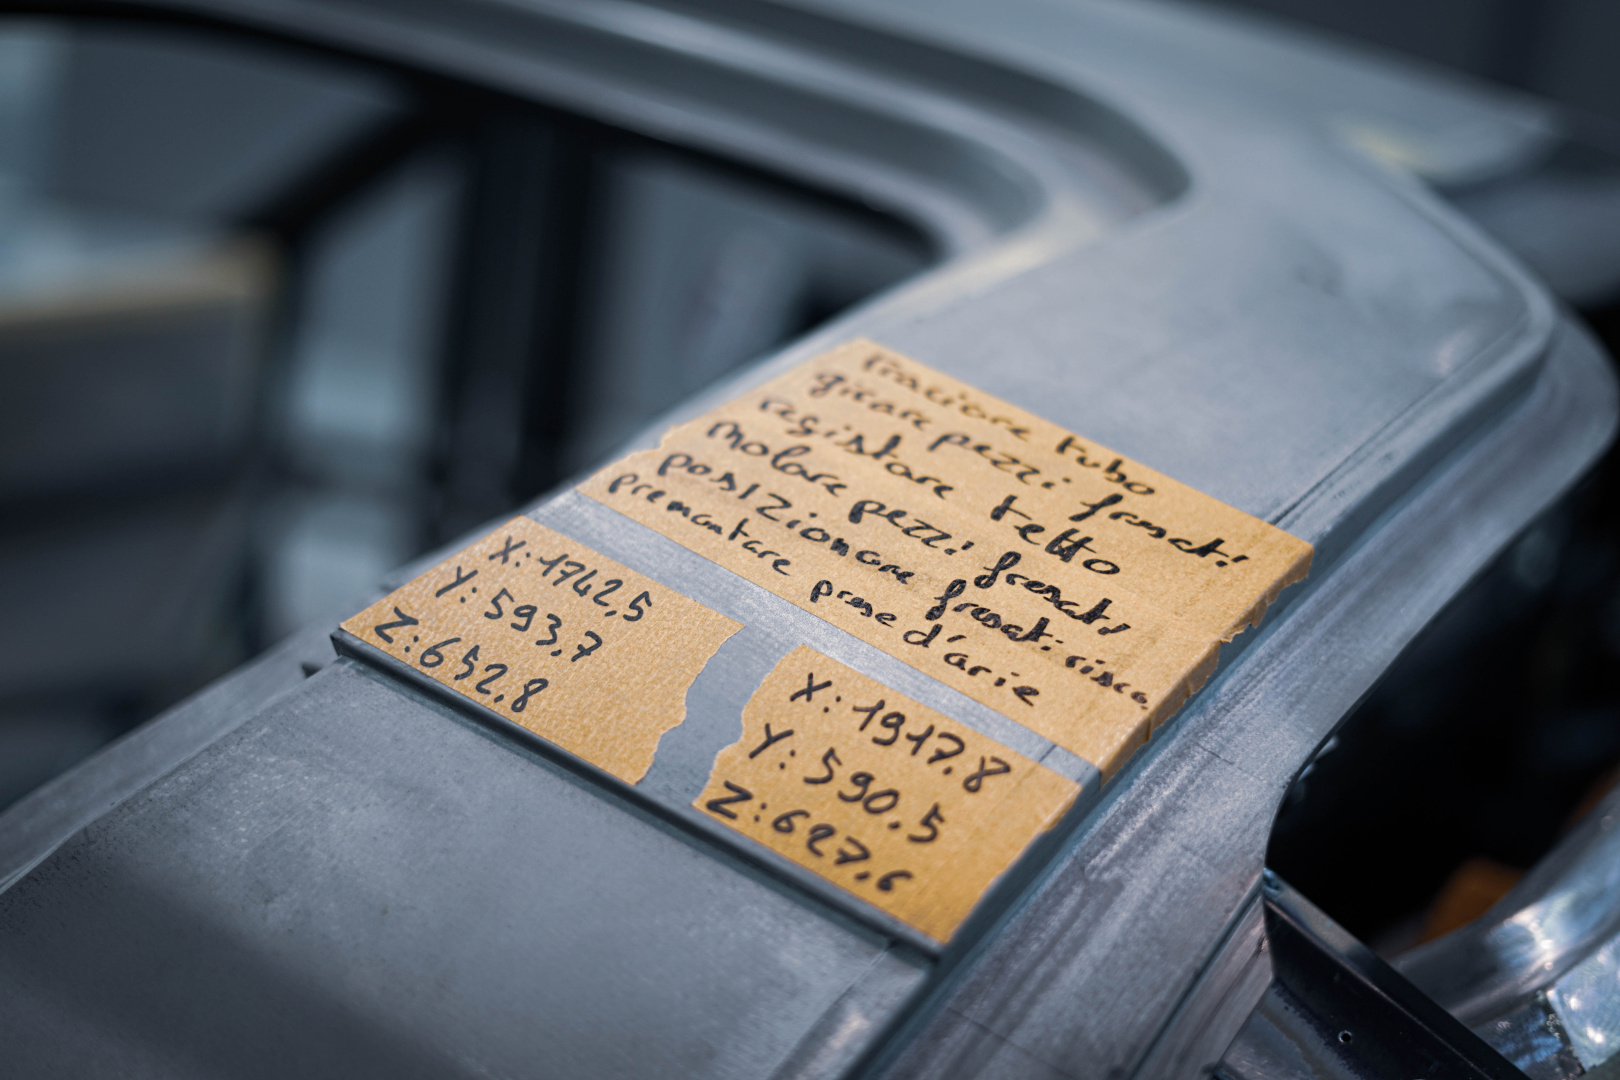 tracciare tubo
girare pezzi fresati
registrare tetto
molare pezzi fresati
posizionare fresati:
premontare prese d'arie
X: 1742,5
Y: 593,7
Z: 652,8
X: 1917.8
Y: 590.5
Z: 627,6